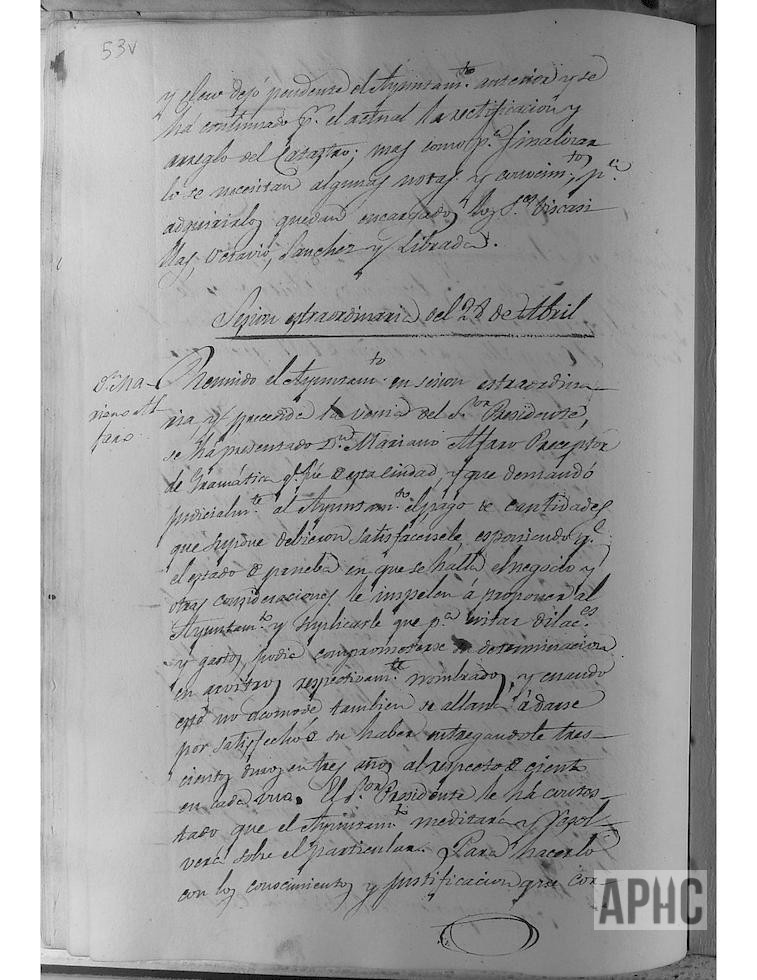 53v
y elevo dejó pendiente el Ayuntam.to anterior y se
ha continuado p.r el actual la rectificacion y
arreglo del Catastro; mas como p.a finalizar
lo se necesitan algunas notas y conocim.tos, p.a
adquirirlos quedan encargados los S.res Viscasi
llas, Octavio, Sanchez y Librada.
Sesion estraordinaria del 28 de Abril
D.n Ma-
riano Al
faro.
Reunido el Ayuntam.to en sesion estraordina-
ria y precedida la venia del S.or Presidente,
se há presentado D.n Mariano Alfaro Preceptor
de Gramática q.e fué de esta ciudad, y que demandó
judicialm.te al Ayuntam.to el pago de cantidades
que supone debieron satisfacersele, esponiendo q.e
el estado de prueba en que se halla el negocio y
otras consideraciones le impelen á proponer al
Ayuntam.to y suplicarle que p.a evitar dilac.es
y gastos, podia comprometerse la determinacion
en arvitros respectivam.te nombrados, y cuando
esto no acomode tambien se allana á darse
por satisfecho de su haber entregandole tres-
cientos duros en tres años al respecto de ciento
en cada uno. El S.or Presidente le há contes-
tado que el Ayuntam.to meditará y resol-
verá sobre el particular. Para hacerlo
con los conocimientos y justificacion que cor-
APHC